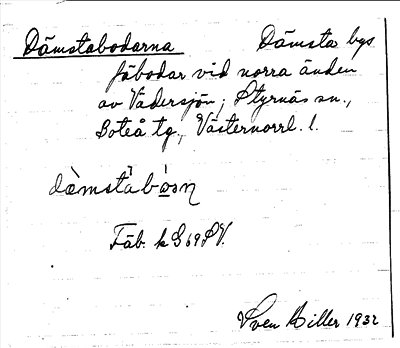 Dämstabodarna Dämsta bys
fäbodar vid norra änden
av Vädersjön; Styrnäs sn.,
Boteå tg., Västernorrl. l.
dämstabòsn
Fäb. k G 69 SV.
Sven Hiller 1932